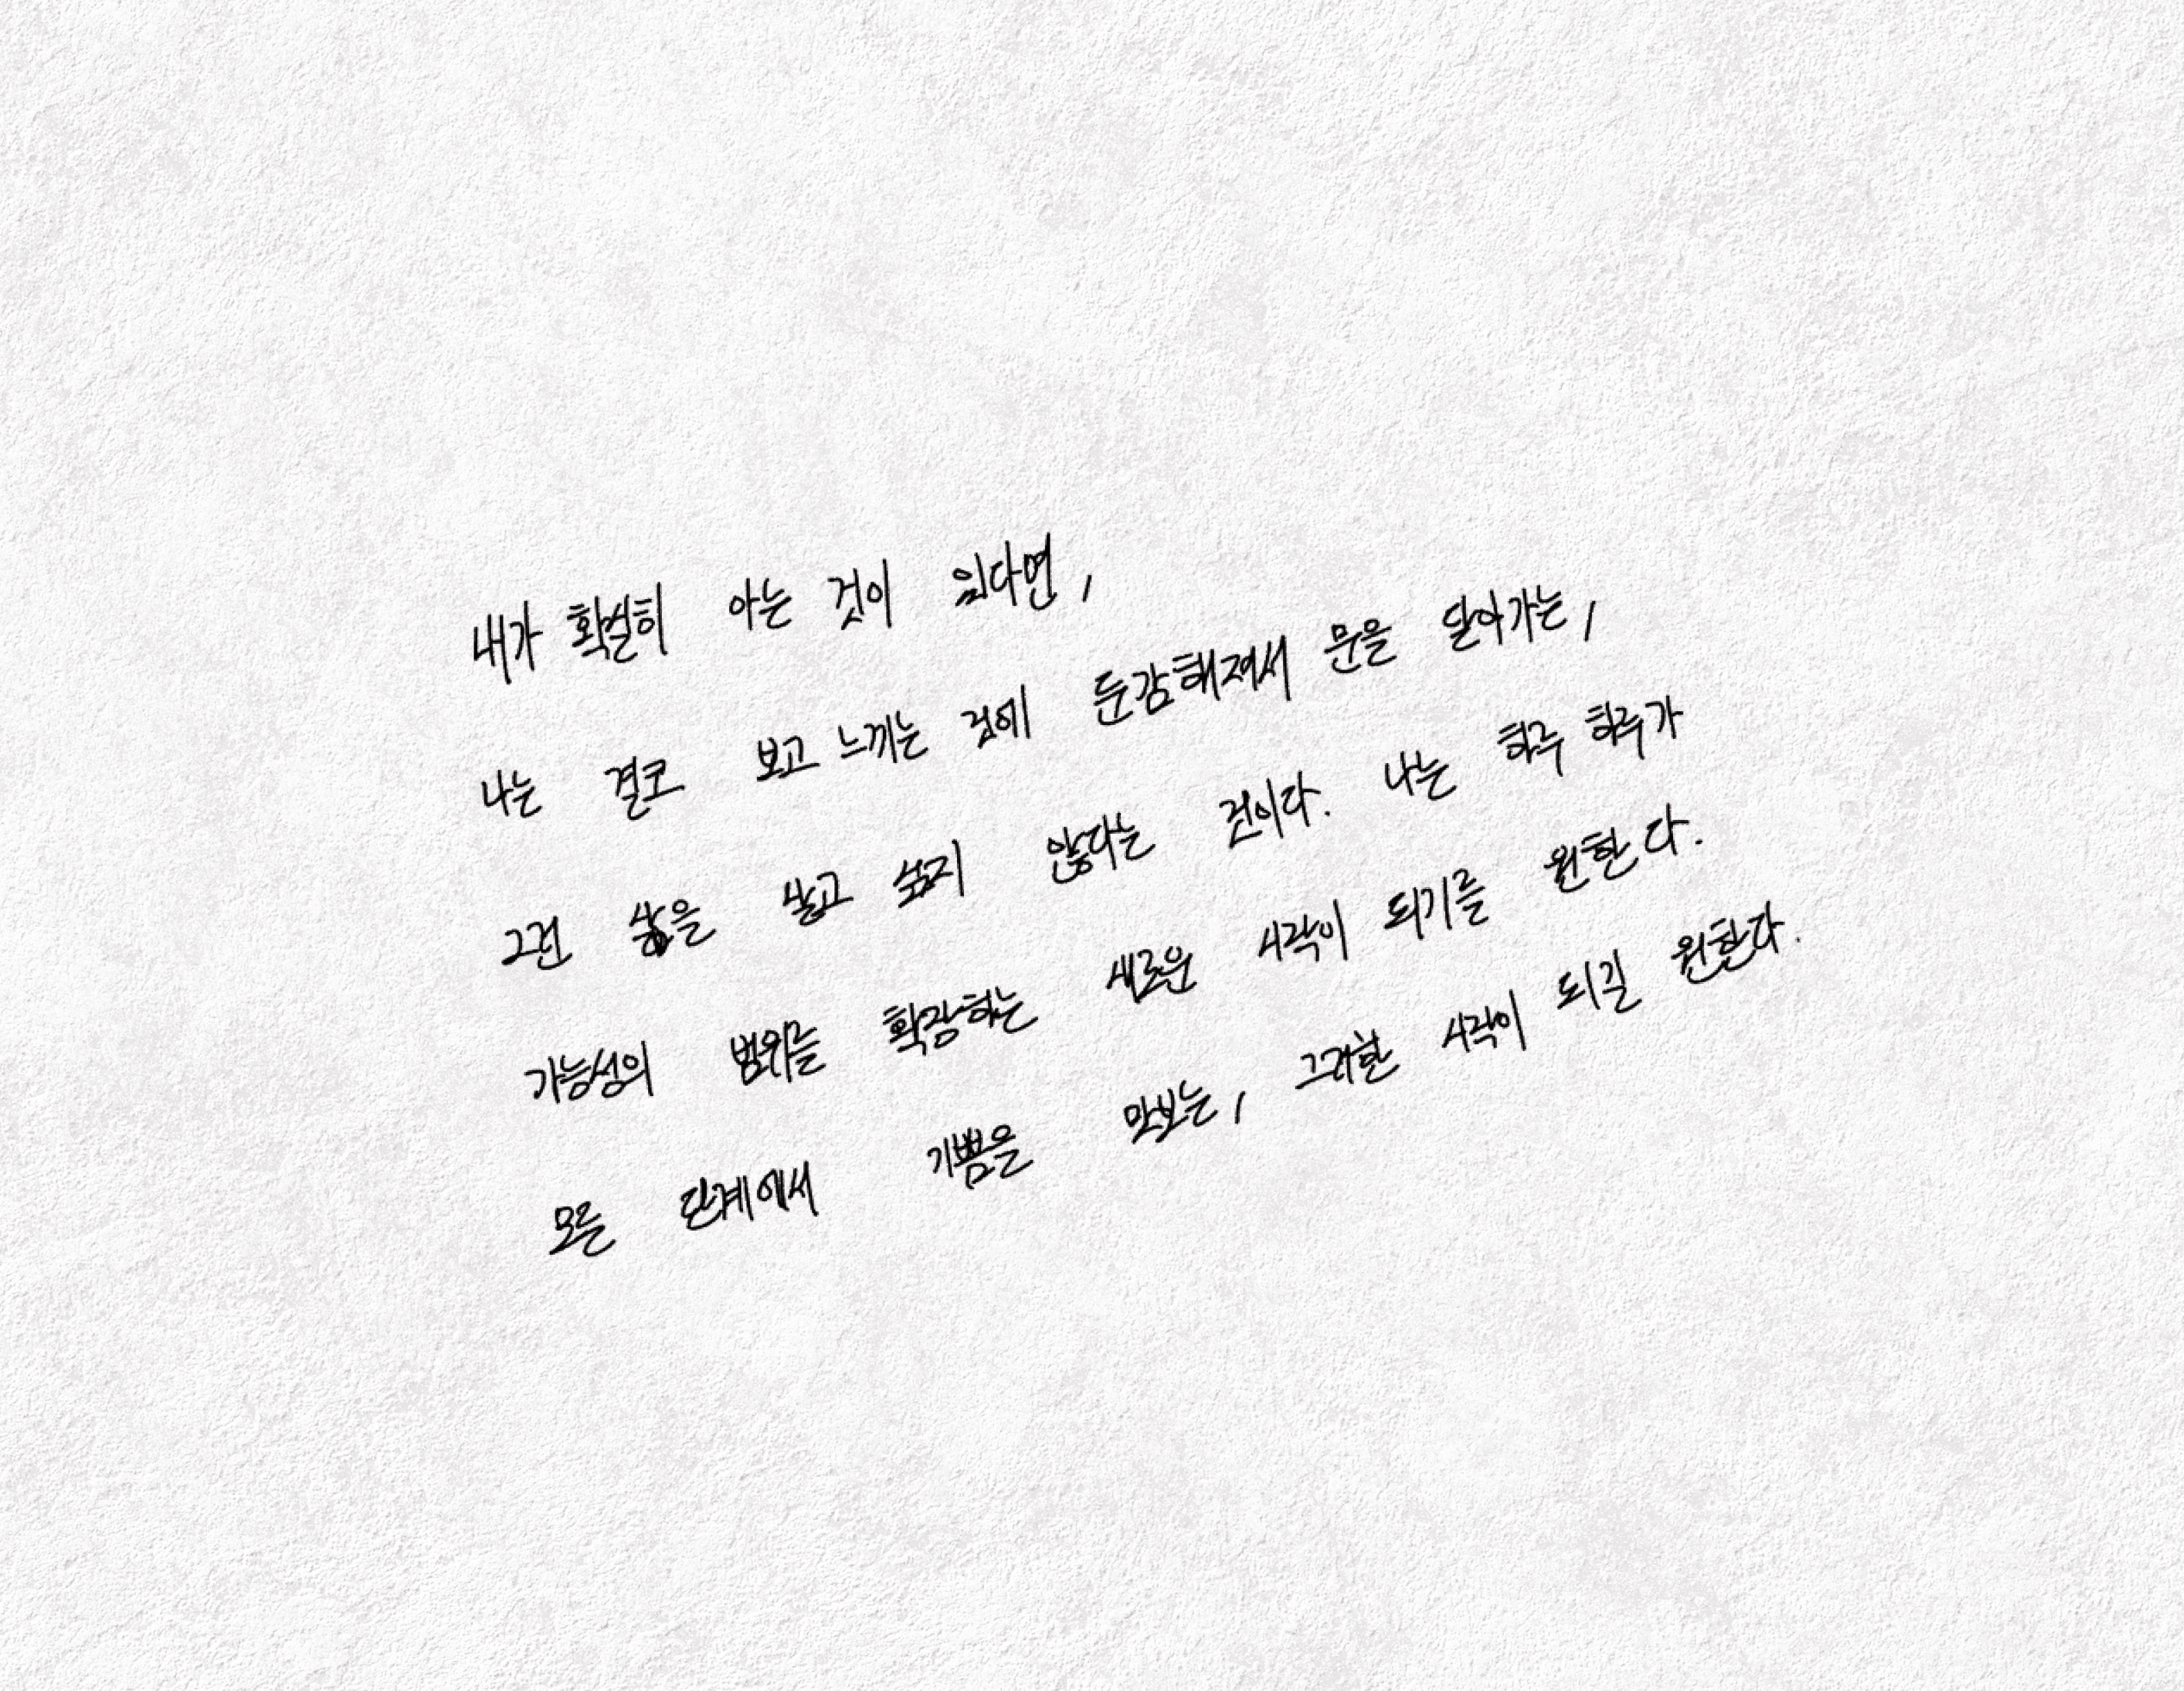 내가 확실히 아는 것이 있다면,
나는 결코 보고 느끼는 것에 둔감해져서 문을 닫아가는,
그런 삶을 살고 싶지 않다는 것이다. 나는 하루 하루가
가능성의 범위를 확장하는 새로운 시작이 되기를 원한다.
모든 단계에서 기쁨을 맛보는, 그러한 시작이 되길 원한다.